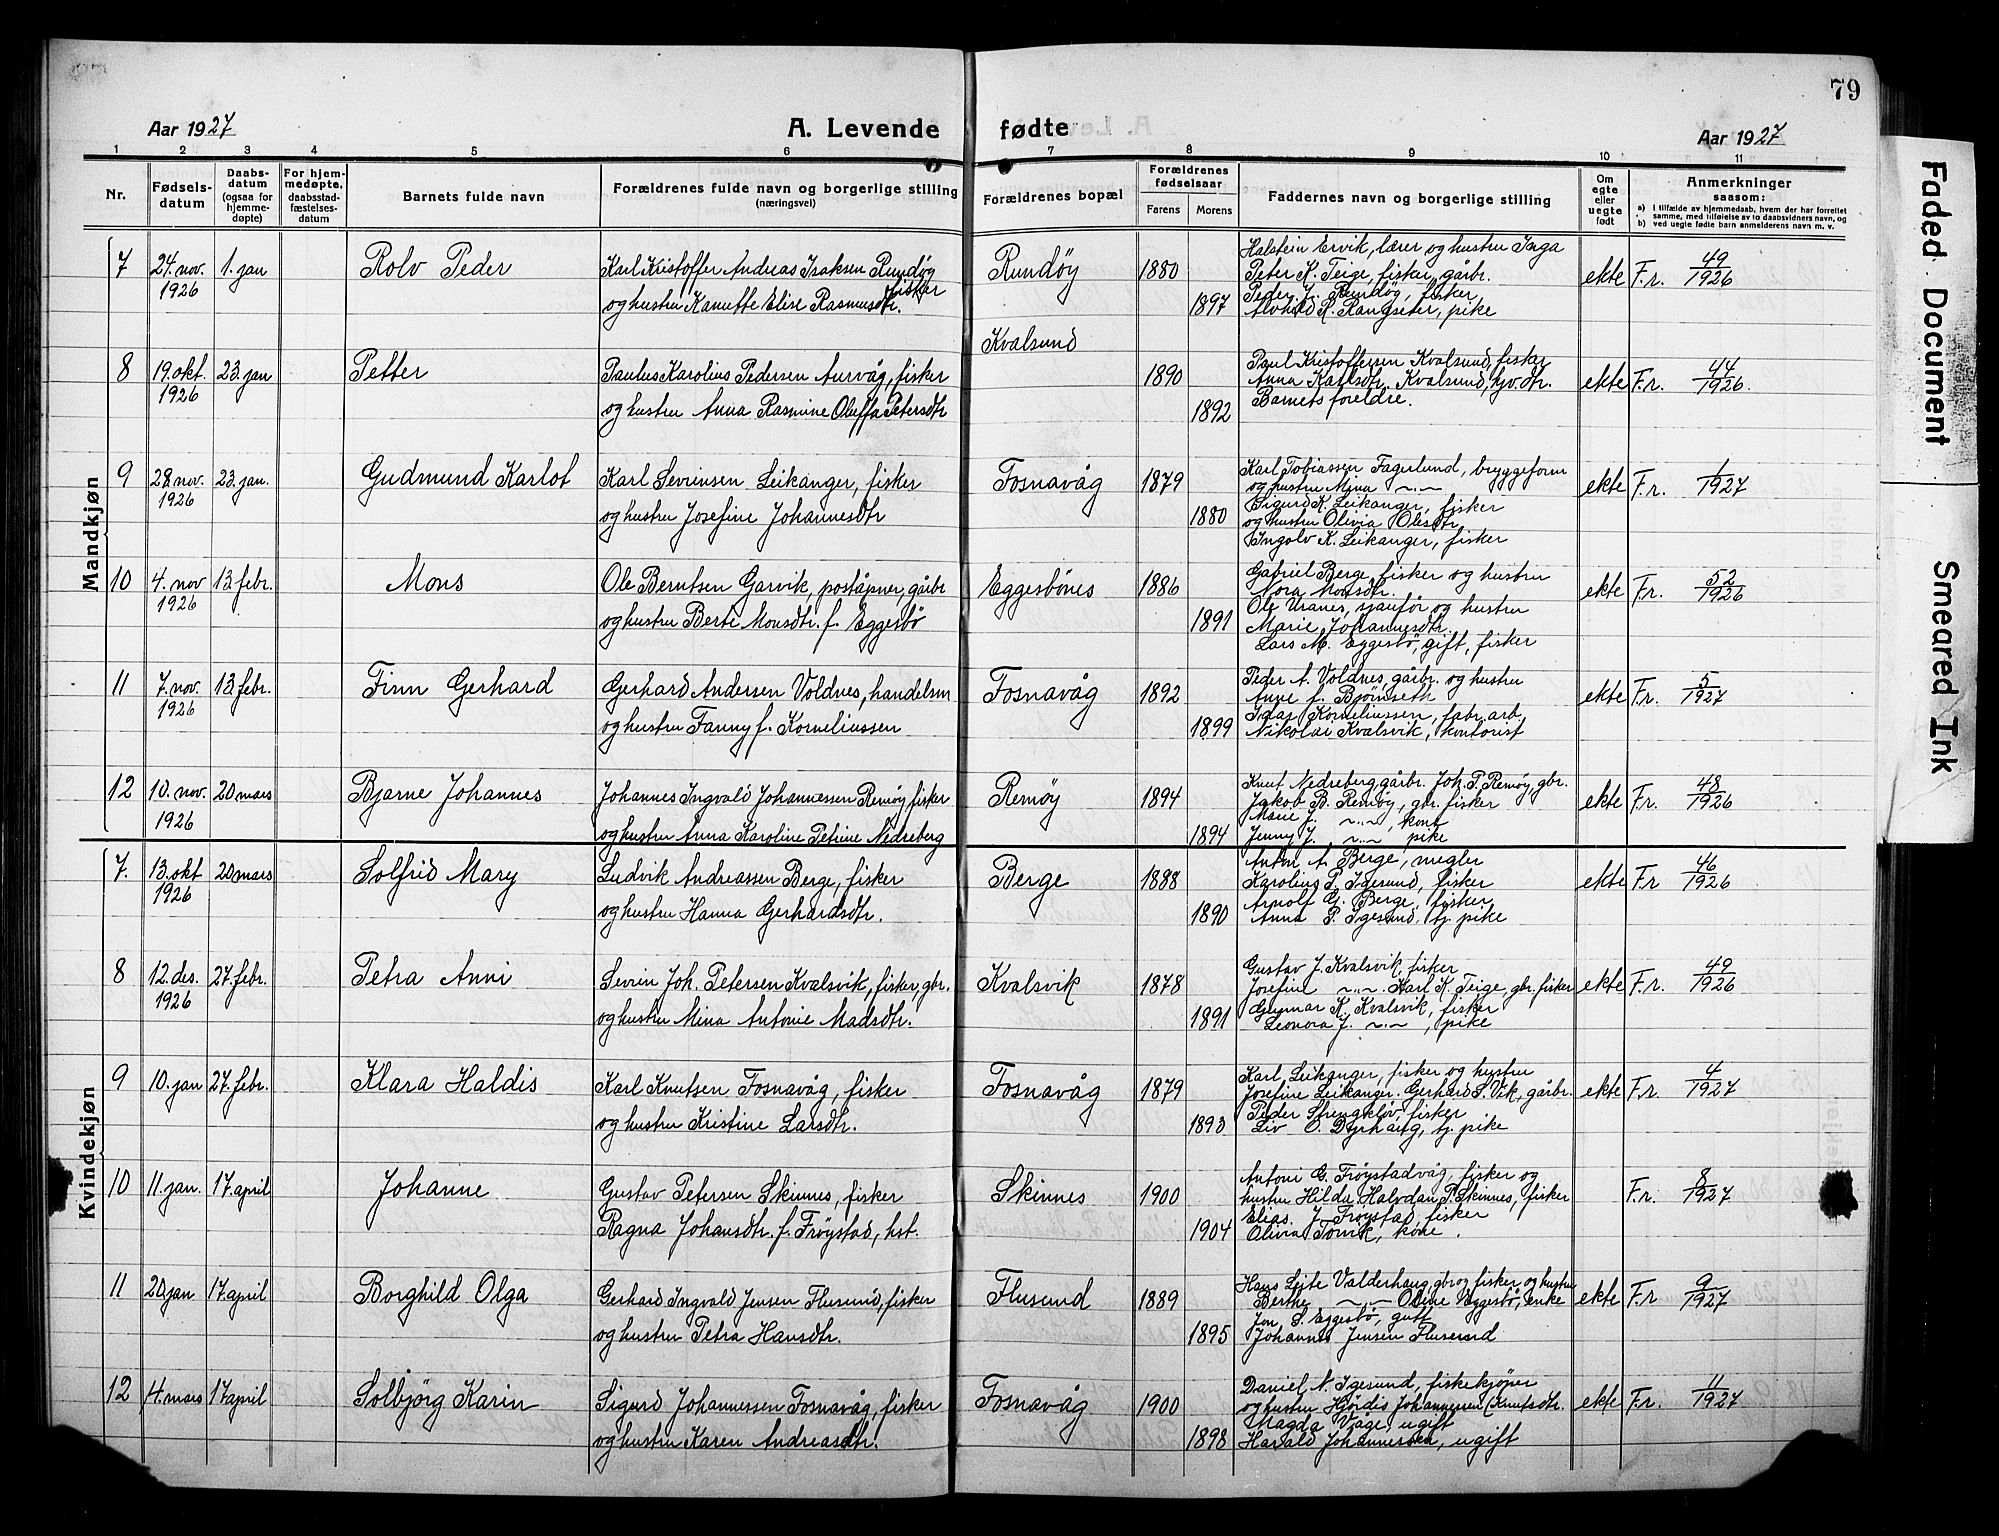 79
Aar 1927
A. Levende fødte
Aar 1927
1 2 3 4 5 6 7 8 9 10 11
Nr.
Fødsels-
datum
Daabs-
datum
(ogsaa for
hjemme-
døpte)
For hjem-
medøpte,
daabsstad-
fæstelses-
datum
Barnets fulde navn
Forældrenes fulde navn og borgerlige stilling
(næringsvei)
Forældrenes bopæl
Forældrenes
fødselsaar
Farens Morens
Faddernes navn og borgerlige stilling
Om
egte
eller
uegte
født
Anmerkninger
saasom:
a) i tilfælde av hjemmedaab, hvem der har forrettet
samme, med tilføielse av to daabsvidners navn, og
b) ved uegte fødte barn anmelderens navn m. v.
Mandkjøn
7 24. nov. 1926 1. jan Rolv Peder
Karl Kristoffer Andreas Isaksen Rundøy fisker
og hustru Kanutte Elise Rasmusdtr.
Rundøy 1880 1897
Halstein Ervik, lærer og hustru Inga
Peter K. Teige, fisker, gårbr.
Peder J. Rundøy, fisker
R. Rangseter, pike
ekte F.r. 49/1926
8 19. okt. 1926 23. jan Petter
Paulus Karolius Pedersen Aurvåg, fisker
og hustru Anna Rasmine Oluffa Petersdtr
Kvalsund 1890 1892
Paul Kristoffersen Kvalsund, fisker
Anna Karlsdtr. Kvalsund, gjv. dtr.
Barnets foreldre.
ekte F.r. 44/1926
9 28. nov. 1926 23. jan. Gudmund Karlot
Karl Sevrinsen Leikanger, fisker
og hustru Josefine Johannesdtr
Fosnavåg 1879 1880
Karl Tobiassen Fagerlund, bryggeform
og hustru Mina —"—
Sigurd K. Leikanger, fisker
og hustru Olivia Olesdtr
Ingolv K. Leikanger, fisker
ekte F.r. 1/1927
10 4. nov 1926 13. febr. Mons
Ole Berntsen Garvik, poståpner, gårbr
og hustru Berte Monsdtr. f. Eggesbö
Eggesbönes 1886 1891
Gabriel Berge, fisker og hustru
Nora Monsdtr.
Ole Uranes, sjauför og hustru
Marie Johannesdtr.
Lars M. Eggesbö, gift, fisker
ekte F.r. 52/1926
11 7. nov. 1926 13. febr. Finn Gerhard
Gerhard Andersen Voldnes, handelsm
og hustru Fanny f. Korneliussen
Fosnavåg 1892 1899
Peder A. Voldnes, gårbr. og hustru
Anne f. Bjørnseth
Korneliussen, fabr. arb.
Nikolai Kvalsvik, kontorist
ekte F.r. 5/1927
12 10. nov. 1926 20 mars Bjarne Johannes
Johannes Ingvald Johannesen Remøy, fisker
og hustru Anna Karoline Petrine Nedreberg
Remøy 1894 1894
Knut Nedreberg, gårbr. Joh. P. Remøy, gbr.
Jakob B. Remøy, gbr. fisker
Marie J. —"—, kont
Jenny J. —"— pike
ekte F.r. 48/1926
Kvindekjøn
7. 13. okt 1926 20 mars Solfrid Mary
Ludvik Andreassen Berge, fisker
og hustru Hanna Gerhardsdtr.
Berge 1888 1890
Anton A. Berge, megler
Karolius P. Igesund, fisker
Arnolf G. Berge, fisker
Anna P. Igesund, tj. pike
ekte F.r 46/1926
8 12. des. 1926 27. febr. Petra Anni
Sevrin Joh. Petersen Kvalsvik, fisker, gbr.
og hustru Mina Antonie Madsdtr.
Kvalsvik 1878 1891
Gustav J. Kvalsvik, fisker
Josefine —"— Karl K. Teige, gbr. fisker
Gunnar K. Kvalsvik, fisker
Leonora J. —"—, pike
ekte F.r. 49/1926
9 10. jan 27. febr. Klara Haldis
Karl Knutsen Fosnavåg, fisker
og hustru Kristine Larsdtr.
Fosnavåg 1879 1893
Karl Leikanger, fisker og hustru
Josefine Leikanger. Gerhard S. Vik, gårbr.
Peder fisker
Liv O. Dyrhaug, tj. pike
ekte F.r. 4/1927
10 11. jan. 17. april Johanne
Gustav Petersen Skinnes, fisker
Ragna Johansdtr. f. Frøystad, hst.
Skinnes 1900 1904
Antoni G. Frøystadvåg, fisker og
hustru Hilda, Halvdan P. Skinnes, fisker
Elias J. Frøystad, fisker
Olivia kone.
F.r. 8/1927
11 20. jan 17. april Borghild Olga
Gerhard Ingvald Jensen Flusund, fisker
og hustru Petra Hansdtr.
Flusund 1889 1895
Hans Leite Valderhaug, gbr og fisker og hustru
Berthe —"— Oline Eggesbö, enke
Jon S. Eggesbö, gutt
Johannes Jensen Flusund
ekte F.r 9/1927
12 4. mars 17 april Solbjörg Karin
Sigurd Johannessen Fosnavåg, fisker
og hustru Karen Andreasdtr.
Fosnavåg 1900 1898
Daniel N. Igesund, fiskekjøper
og hustru Hjördis Johannessen (Knutsdtr.
Magda Våge, ugift
Harald Johannessen, ugift
ekte F.r. 11/1927
Faded Document
Smeared Ink